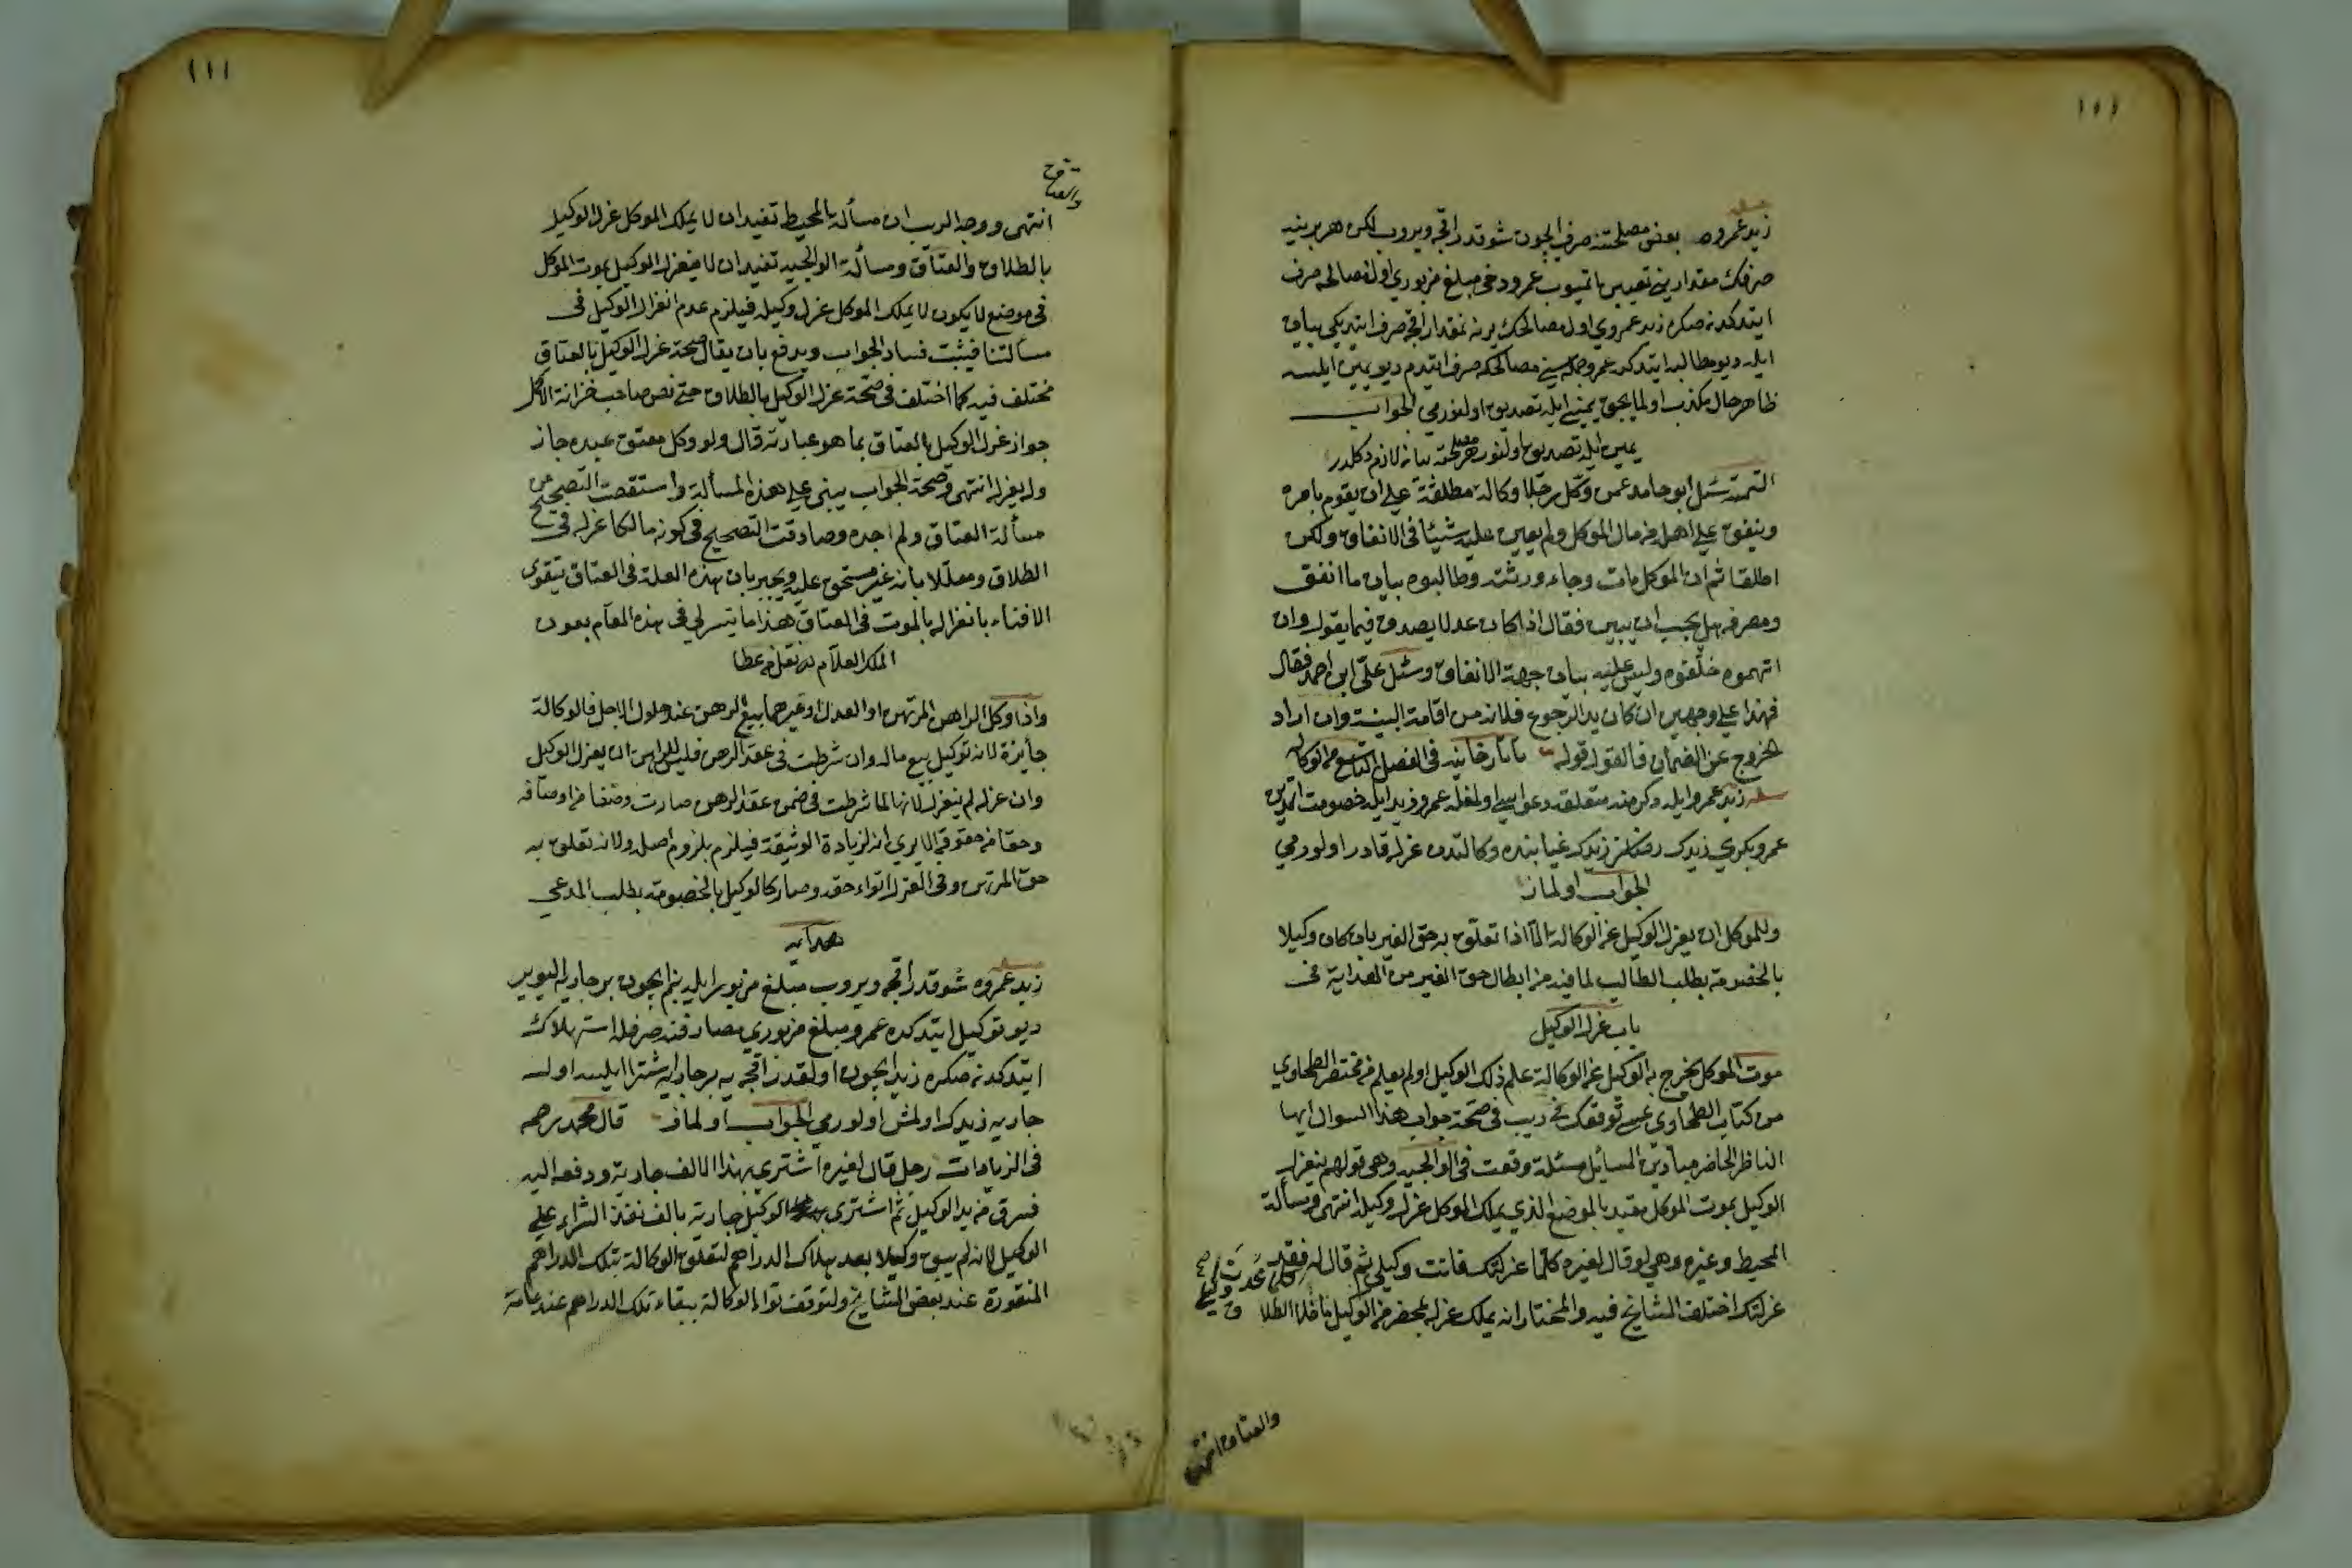 ١١١
زيد عمروه بعض مصلحتنه صرف ايچون شوقدر اقچه ويروب لكن هر برينه
صرفك مقدارينى تعيين اتميوب عمرو دخى مبلغ مزبورى اول مصالحه صرف
ايتدكدنصكره زيد عمروى اول مصالحك برينه نه مقدار اقچه صرف ايتديكى بيان
ايله ديو مطالبه ايتدكده عمرو جمله سينى مصالحكه صرف ايتدم ديو يمين ايلسه
ظاهر حال مكذب اولمايجق يمينى ايله تصديق اولنورمى الجواب
يمين ايله تصديق اولنور هر مصلحته بيانه لازم دكلدر
التتمة سئل ابو حامد عمن وكل رجلا وكالة مطلقة على ان يقوم بامره
وينفق على اهله من مال الموكل ولم يعين عليه شيئا فى الانفاق ولكن
اطلقا ثم ان الموكل مات وجاء ورثته وطالبوه ببيان ما انفق
ومصرفه هل يجب ان يبين فقال اذا كان عدلا يصدق فيما يقول وان
اتهموه حلفوه وليس عليه بيان جهة الانفاق وسئل على ابن احمد فقال
فهذا على وجهين ان كان يريد الرجوع فلا بد من اقامة البينة وان اراد
الخروج عن الضمان فالقول قوله تاتارخانيه فى الفصل التاسع من الوكالة
زيد عمرو ايله دكرمنه متعلقه دعواسى اولمغله عمرو زيد ايله خصومت ايچون
عمرو بكرى زيدك رضاسز زيدك غيابنده وكالتدن عزله قادر اولورمى
الجواب اولماز
وللموكل ان يعزل الوكيل عن الوكالة الا اذا تعلق به حق الغير بان كان وكيلا
بالخصومة بطلب الطالب لما فيه من ابطال حق الغير من الهداية فى
باب عزل الوكيل
موت الموكل يخرج به الوكيل عن الوكالة علم ذلك الوكيل او لم يعلم من مختصر الطحاوى
من كتاب الطحاوى عسى توقفك فى ريب فى صحة جواب هذا السوال ايها
الناظر الحاضر مبادئ المسائل مسئلة وقعت فى الولوالجيه وهى قولهم ينعزل
الوكيل بموت الموكل مقيد بالموضع الذى يملك الموكل عزل وكيله انتهى ومسألة
المحيط وغيره وهى لو قال لغيره كلما عزلتك فانت وكيلى ثم قال له فقد
عزلتك اختلف المشايخ فيه والمختار انه يملك عزله بمحضر من الوكيل ما خلا الطلاق
والعتاق انتهى
١١١
والعتاق صح
انتهى ووجه الريب ان مسألة المحيط تفيد ان لا يملك الموكل عزل الوكيل
بالطلاق والعتاق ومسألة الولوالجيه تفيد ان لا ينعزل الوكيل بموت الموكل
فى موضع لا يكون لا يملك الموكل عزل وكيله فيلزم عدم انعزال الوكيل فى
مسألتنا فيثبت فساد الجواب ويدفع بان يقال صحة عزل الوكيل بالعتاق
مختلف فيه كما اختلف فى صحة عزل الوكيل بالطلاق حتى نص صاحب خزانة الاكمل
جواز عزل الوكيل بالعتاق بما هو عبارته قال ولو وكل بعتق عبده جاز
وله يعزله انتهى وصحة الجواب يبنى على هذه المسألة واستقصيت التصحيح عن
مسألة العتاق ولم اجده وصادفت التصحيح فى كونه مالكا عزله فى
الطلاق ومعللا بانه غير مستحق عليه ويجبر بان بهذه العلة فى العتاق يتقوى
الافتاء بانعزاله بالموت فى العتاق هذا ما تيسر لى فى هذه المقام بعون
الملك العلام من نقل عطا
واذا وكل الراهن المرتهن او العدل او غيرهما ببيع الرهن عند حلول الاجل فالوكالة
جايزة لانه توكيل ببيع ماله وان شرطت فى عقد الرهن فليس للراهن ان يعزل الوكيل
وان عزله لم ينعزل لانها لما شرطت فى ضمن عقد الرهن صارت وصفا من اوصافه
وحقا من حقوقه الا يرى انه لزيادة الوثيقة فيلزم بلزوم اصله ولانه تعلق به
حق المرتهن وفى العزل اتواء حقه وصار كالوكيل بالخصومة بطلب المدعى
هدايه
زيد عمروه شوقدر اقچه ويروب مبلغ مزبور ايله بنم ايچون بر جاريه اليوير
ديو توكيل ايتدكده عمرو مبلغ مزبورى مصارفنه صرفله استهلاك
ايتدكدنصكره زيد ايچون اولقدر اقچه يه بر جاريه اشترا ايلسه اول
جاريه زيدك اولمش اولورمى الجواب اولماز قال محمد رحمه
فى الزيادات رجل قال لغيره اشترى بهذا الالف جارية ودفعه اليه
فسرق من يد الوكيل ثم اشترى الوكيل جارية بالف نفذ الشراء على
الوكيل لانه لم يبق وكيلا بعد هلاك الدراهم لتعلق الوكالة بتلك الدراهم
المنقودة عند بعض المشايخ ولتوقف بقاء الوكالة ببقاء تلك الدراهم عند عامة